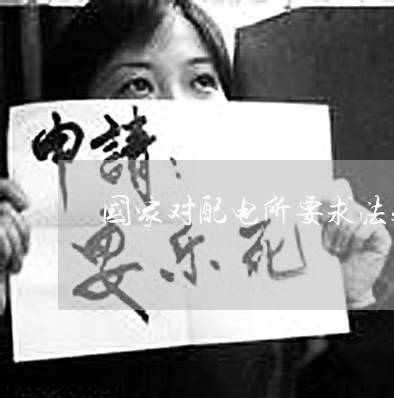 申請：
国家对配电所要求法
安乐死